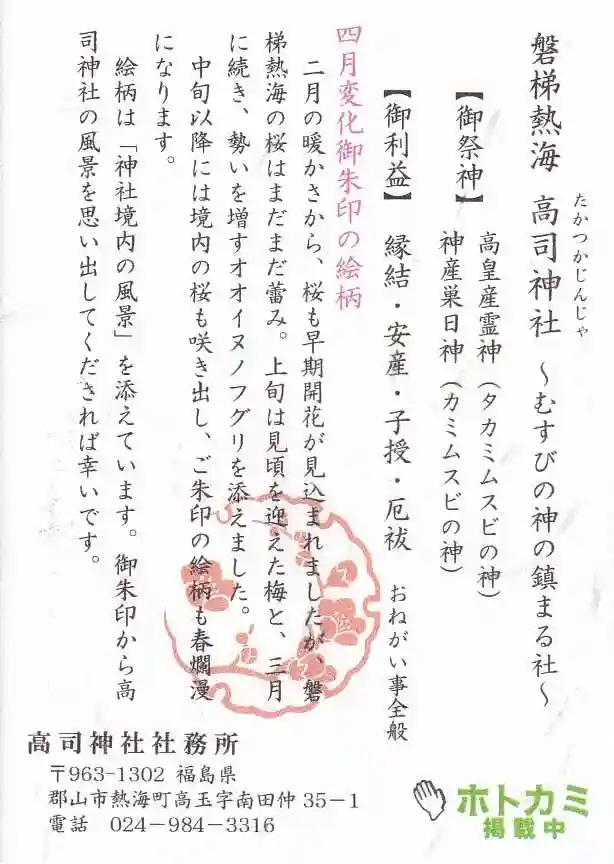 たかつかじんじゃ
磐梯熱海 高司神社 〜むすびの神の鎮まる社〜
【御祭神】 高皇産霊神(タカミムスビの神)
神産巣日神(カミムスビの神)
【御利益】 縁結・安産・子授・厄祓 おねがい事全般
四月変化御朱印の絵柄
二月の暖かさから、桜も早期開花が見込まれましたが、磐
梯熱海の桜はまだまだ蕾み。上旬は見頃を迎えた梅と、三月
に続き、勢いを増すオオイヌノフグリを添えました。
中旬以降には境内の桜も咲き出し、ご朱印の絵柄も春爛漫
になります。
絵柄は「神社境内の風景」を添えています。御朱印から高
司神社の風景を思い出してくだされば幸いです。
高司神社社務所
〒963-1302 福島県
郡山市熱海町高玉字南田仲 35-1
電話 024-984-3316
ホトカミ
掲載中